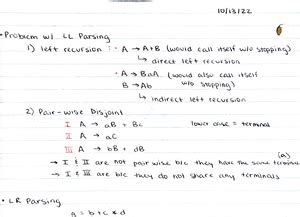 10/13/22
• Problem w/ LL Parsing
1) left recursion : • A → A+B (would call itself w/o stopping)
↳ direct left recursion
• A → BaA (would also call itself
B → Ab w/o stopping)
↳ indirect left recursion
2) Pair-wise Disjoint
I A → aB + Bc lower case = terminal
II A → aC
III A → bB + dB
→ I & II are not pair wise b/c they have the same terminal (a)
→ I & III are b/c they do not share any terminals
• LR Parsing
a = b + c * d